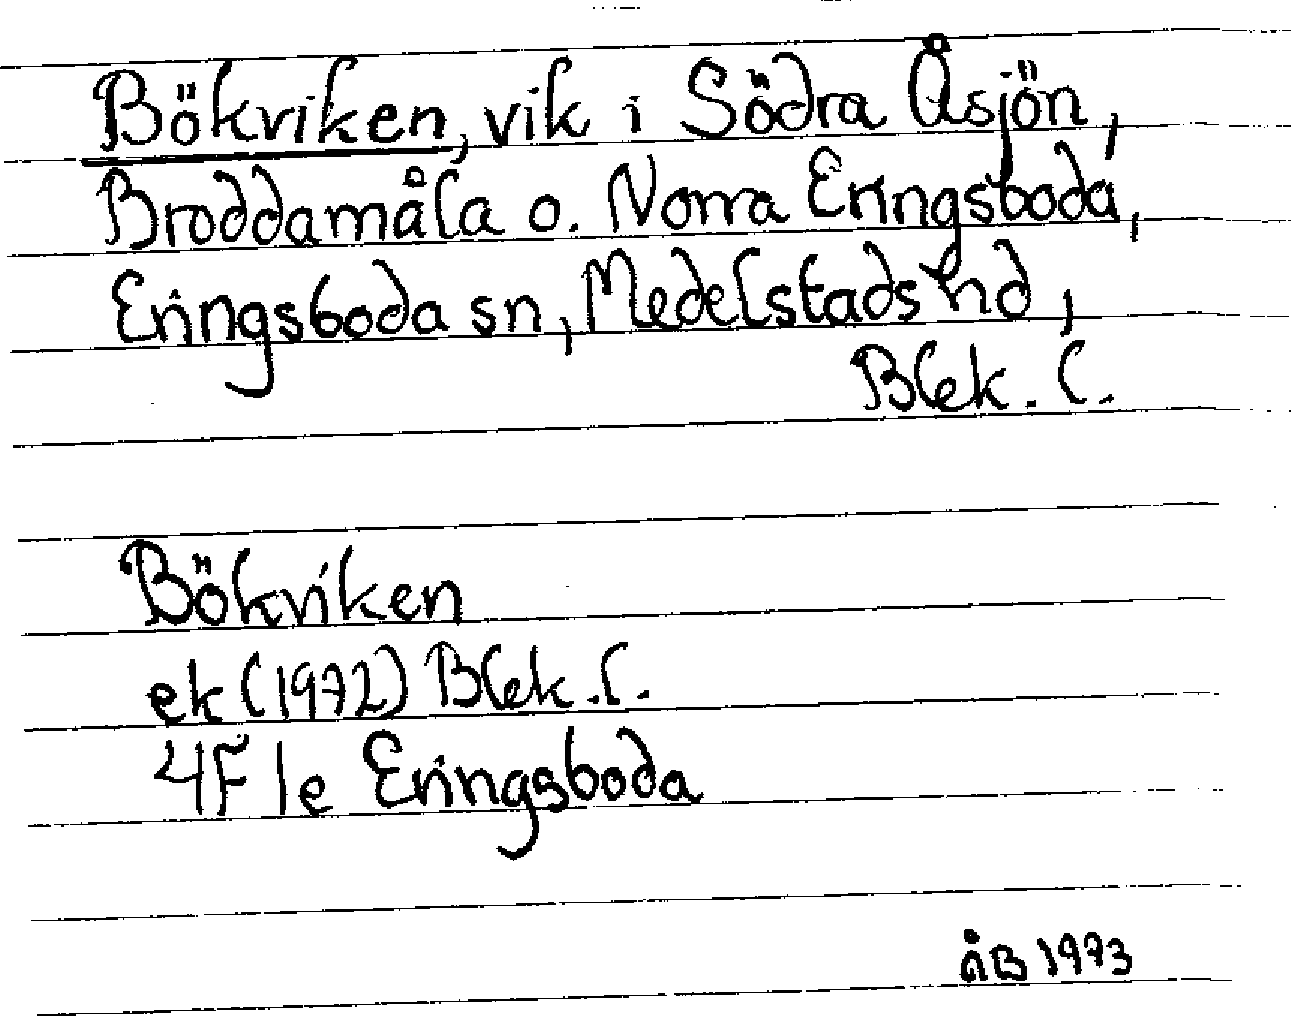 Bökviken, vik i Södra Åsjön,
Broddamåla o. Norra Eringsboda,
Eringsboda sn, Medelstads hd,
Blek. l.
Bökviken
ek (1972) Blek. l.
4F 1e Eringsboda
ÅB 1973